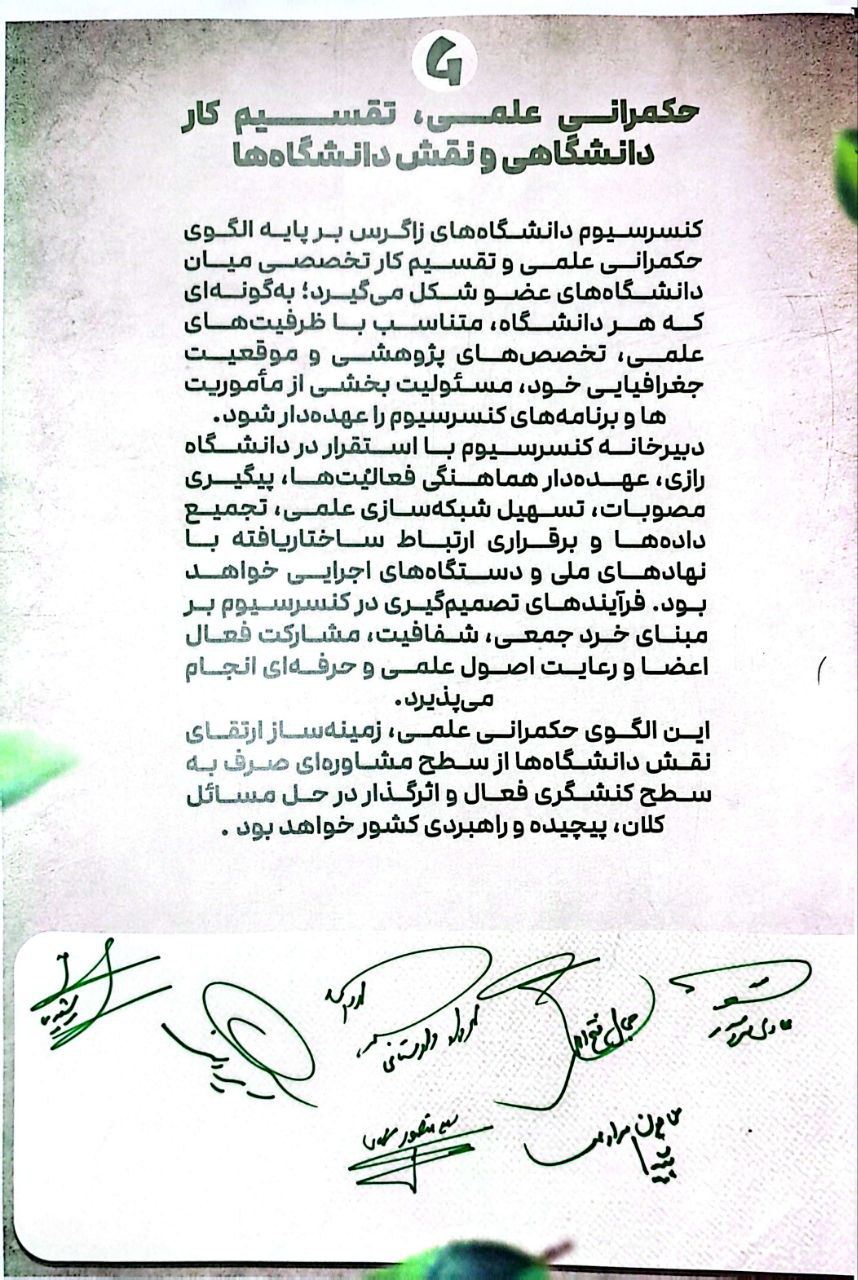 ۶
حکمرانی علمی، تقسیم کار
دانشگاهی و نقش دانشگاه‌ها
کنسرسیوم دانشگاه‌های زاگرس بر پایه الگوی
حکمرانی علمی و تقسیم کار تخصصی میان
دانشگاه‌های عضو شکل می‌گیرد؛ به‌گونه‌ای
که هر دانشگاه، متناسب با ظرفیت‌های
علمی، تخصص‌های پژوهشی و موقعیت
جغرافیایی خود، مسئولیت بخشی از مأموریت
ها و برنامه‌های کنسرسیوم را عهده‌دار شود.
دبیرخانه کنسرسیوم با استقرار در دانشگاه
رازی، عهده‌دار هماهنگی فعالیت‌ها، پیگیری
مصوبات، تسهیل شبکه‌سازی علمی، تجمیع
داده‌ها و برقراری ارتباط ساختاریافته با
نهادهای ملی و دستگاه‌های اجرایی خواهد
بود. فرآیندهای تصمیم‌گیری در کنسرسیوم بر
مبنای خرد جمعی، شفافیت، مشارکت فعال
اعضا و رعایت اصول علمی و حرفه‌ای انجام
می‌پذیرد.
این الگوی حکمرانی علمی، زمینه‌ساز ارتقای
نقش دانشگاه‌ها از سطح مشاوره‌ای صرف به
سطح کنشگری فعال و اثرگذار در حل مسائل
کلان، پیچیده و راهبردی کشور خواهد بود .